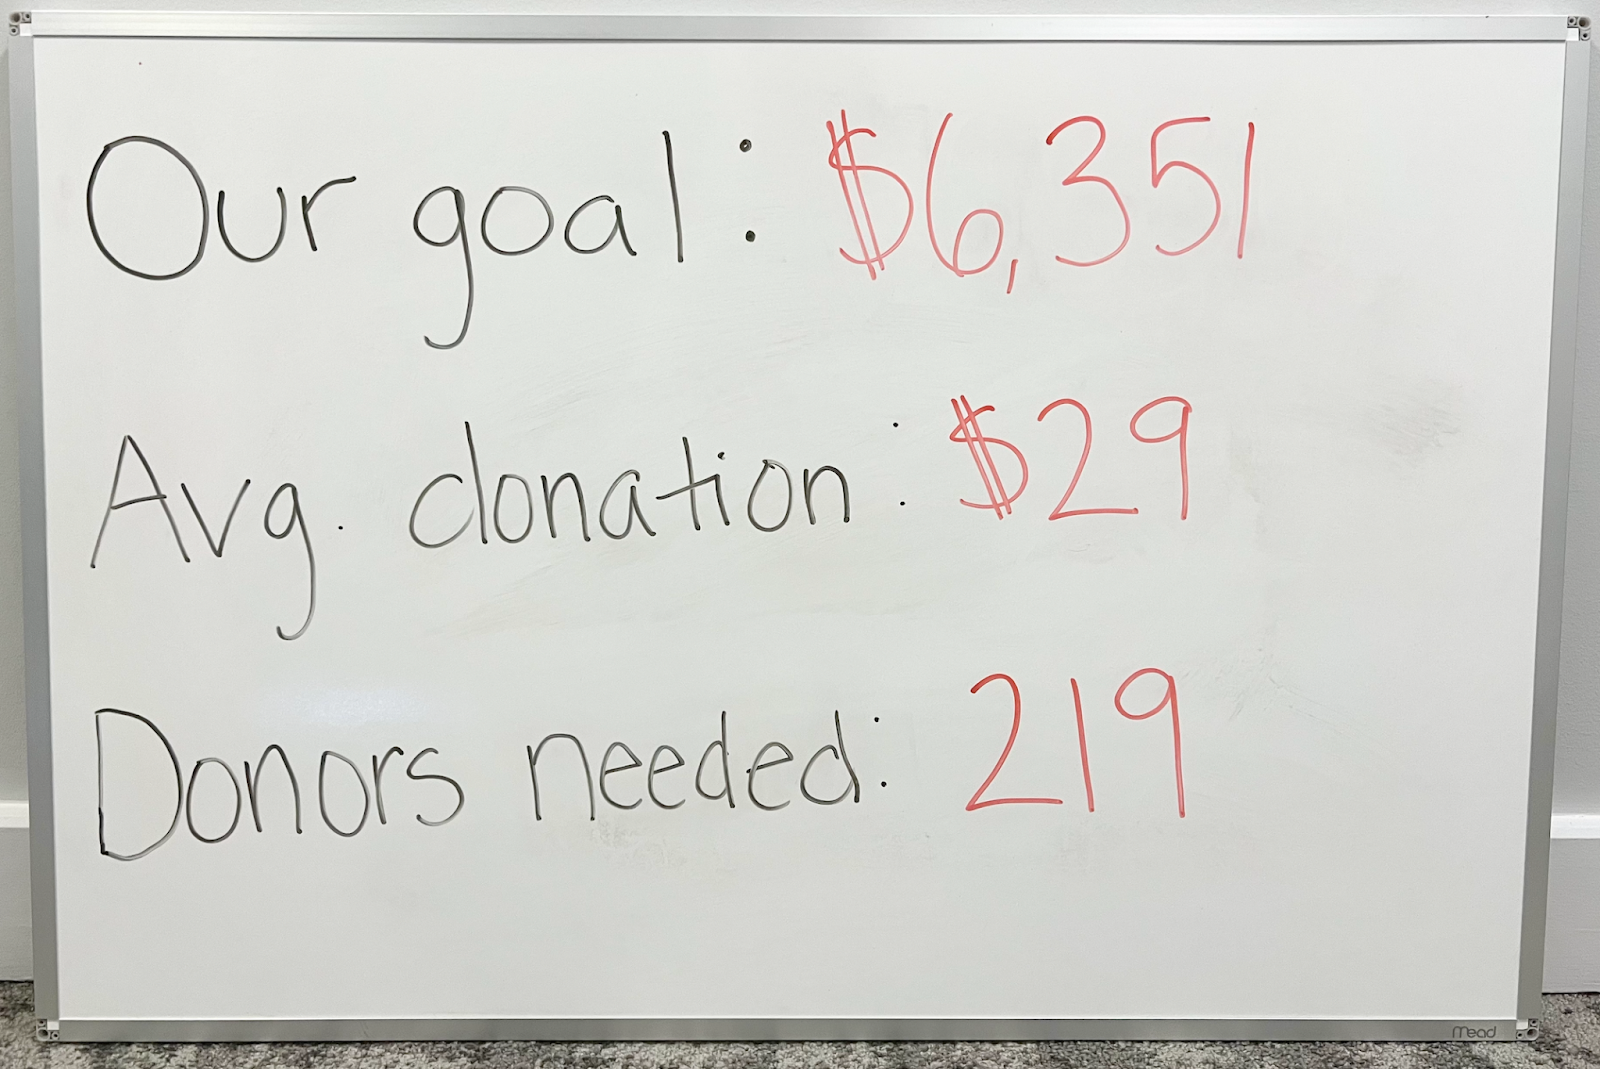 Our goal: $6,351
Avg. donation: $29
Donors needed: 219
Mead